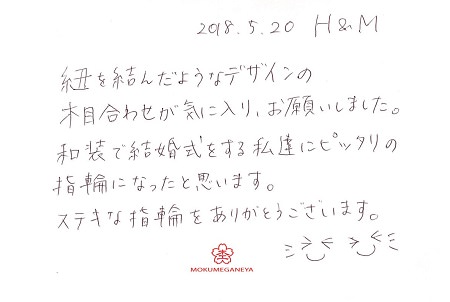 2018.5.20 H&M
紐を結んだようなデザインの
木目合わせが気に入り、お願いしました。
和装で結婚式をする私達にピッタリの
指輪になったと思います。
ステキな指輪をありがとうございます。
MOKUMEGANEYA